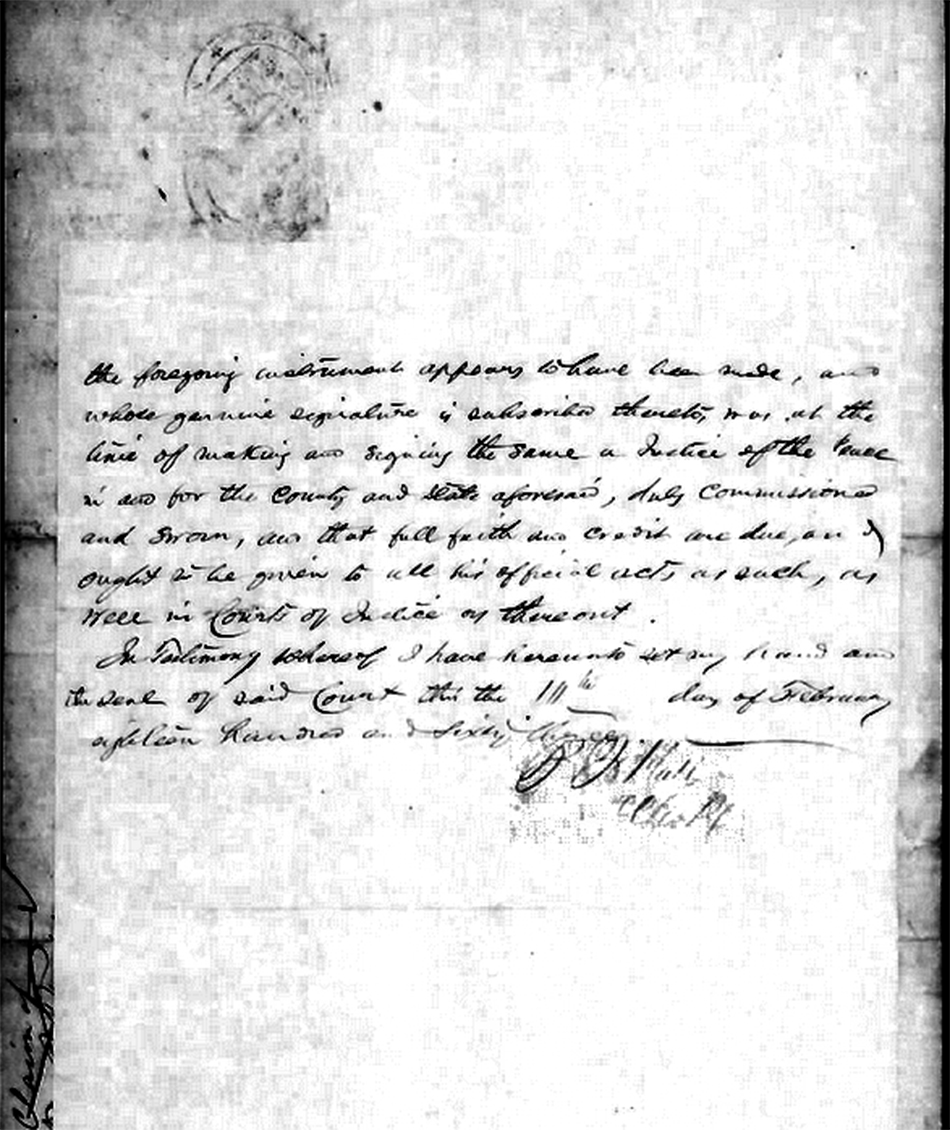 the foregoing instrument appears to have been made, and
whose genuine signature is subscribed thereto, was at the
time of making and signing the same a Justice of the Peace
in and for the County and State aforesaid, duly Commissioned
and Sworn, and that full faith and credit are due, and
ought to be given to all his official acts as such, as
well in Courts of Justice as thereout.
In Testimony whereof I have hereunto set my hand and
the seal of said Court this the day of February
eighteen hundred and Sixty three
Clerk
Claim